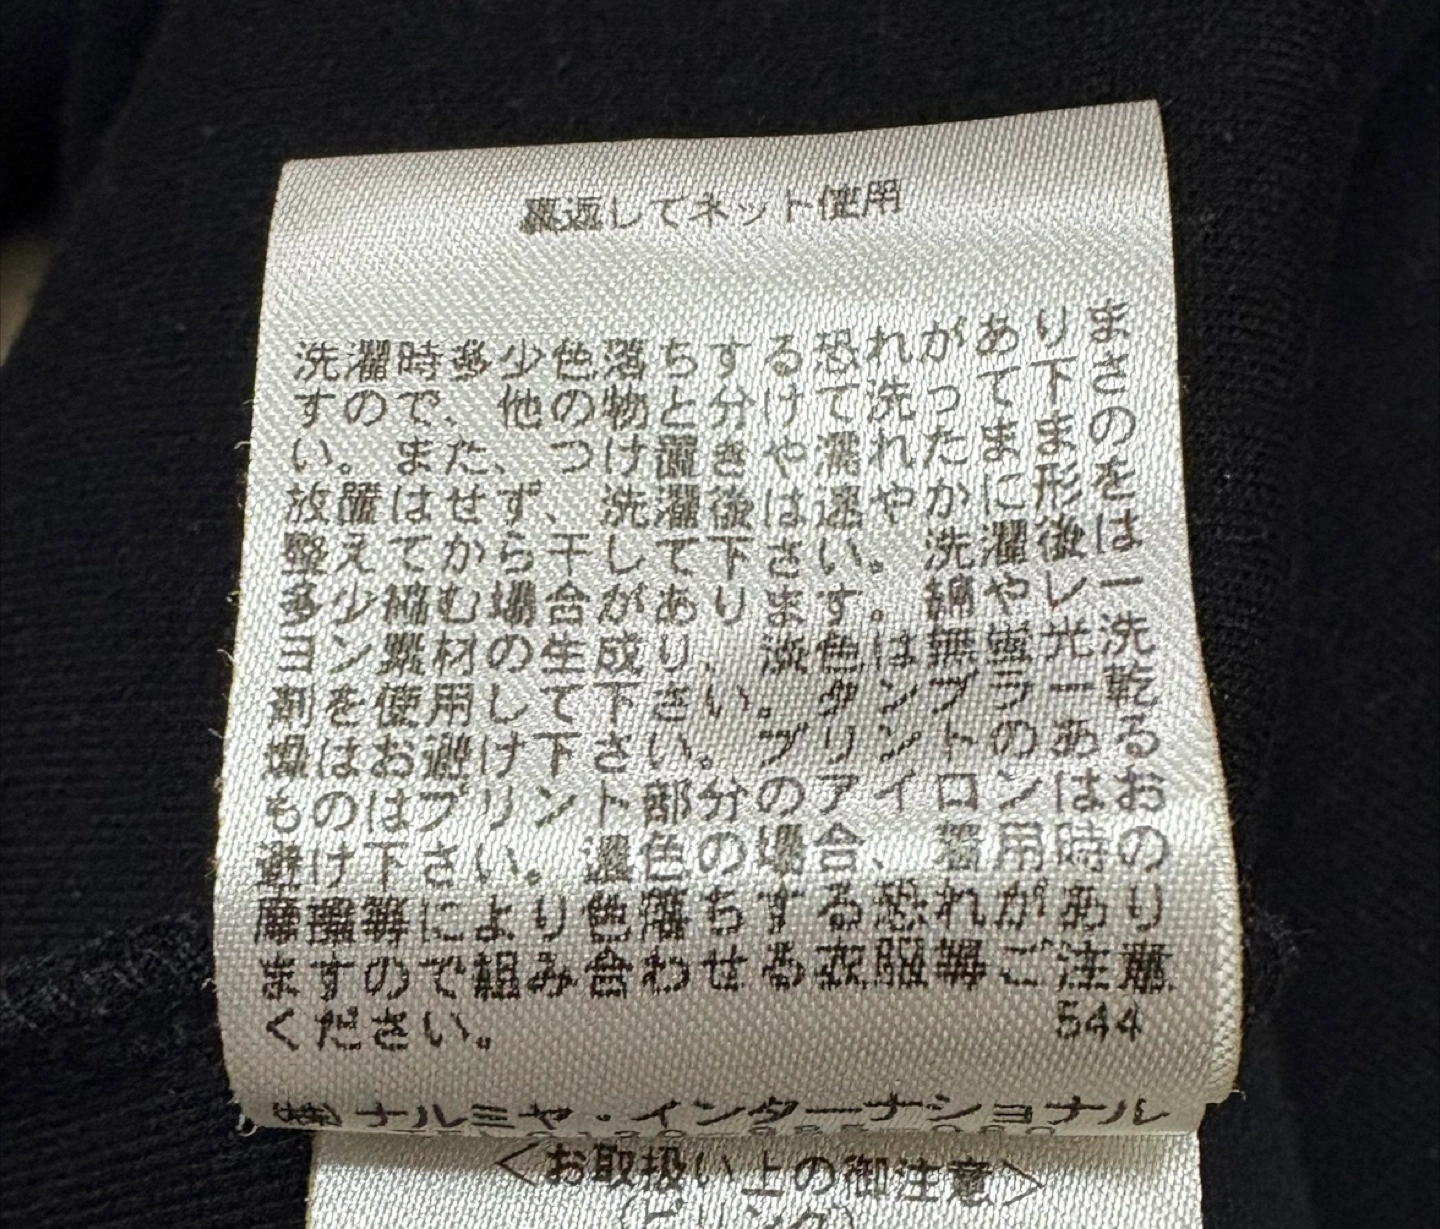 裏返してネット使用
洗濯時多少色落ちする恐れがありま
すので、他の物と分けて洗って下さ
い。また、つけ置きや濡れたままの
放置はせず、洗濯後は速やかに形を
整えてから干して下さい。洗濯後は
多少縮む場合があります。綿やレー
ヨン素材の生成り、淡色は無蛍光洗
剤を使用して下さい。タンブラー乾
燥はお避け下さい。プリントのある
ものはプリント部分のアイロンはお
避け下さい。濃色の場合、着用時の
摩擦等により色落ちする恐れがあり
ますので組み合わせる衣服等ご注意
ください。 544
㈱ナルミヤ・インターナショナル
<お取扱い上の御注意>
(ピリング)